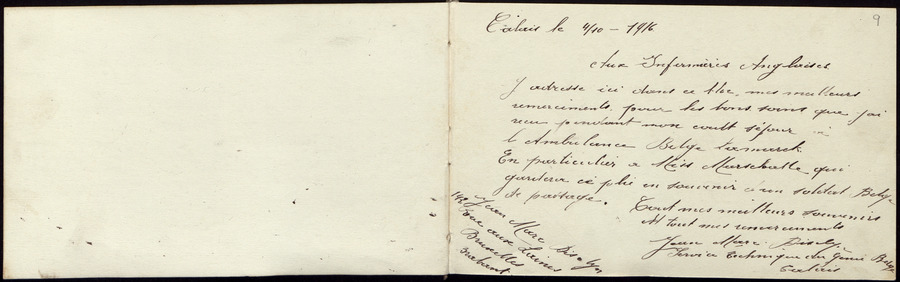 9
Calais le 4/10 - 1916
Aux Infirmières Anglaises
J'adresse ici dans ce bloc mes meilleurs
remerciments pour les bons soins que j'ai
recu pendant mon court séjour à
l'Ambulance Belge
En particulier a Miss Marshalle qui
gardera ce plis en souvenir d'un soldat Belge
de passage.
Tout mes meilleurs souvenirs
et tout mes remerciments
Jean Marc
Service technique du Génie Belge
Calais
Jean Marc
rue aux Laines
Bruxelles
Brabant